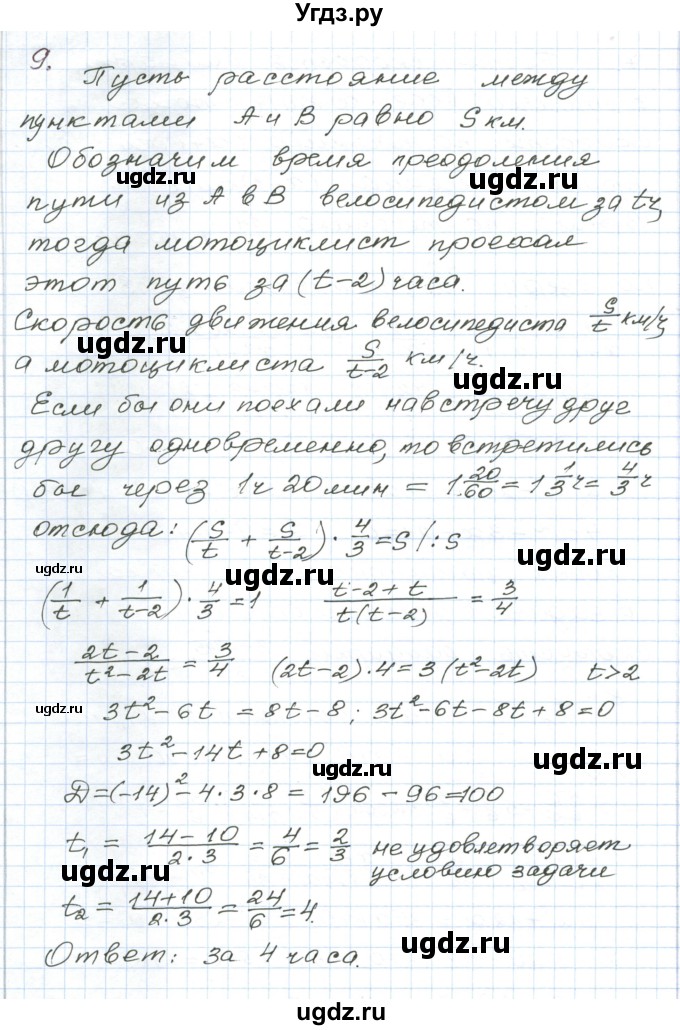 Угдз.ру
9.
Пусть расстояние между
пунктами А и В равно S км.
Обозначим время преодоления
ugdz.ru ugdz.ru
пути из А в В велосипедистом за tч,
тогда мотоциклист проехал
этот путь за (t-2) часа.
Скорость движения велосипедиста S/t км/ч,
ugdz.ru
а мотоциклиста S/t-2 км/ч.
ugdz.ru
Если бы они поехали навстречу друг
другу одновременно, то встретились
бы через 1ч 20мин = 1 20/60 = 1 1/3 ч = 4/3 ч
отсюда: (S/t + S/t-2) · 4/3 = S /:S
ugdz.ru
ugdz.ru ugdz.ru
(1/t + 1/t-2) · 4/3 = 1 t-2+t/t(t-2) = 3/4
2t-2/t²-2t = 3/4 (2t-2)·4=3(t²-2t) t>2
ugdz.ru
3t²-6t = 8t-8; 3t²-6t-8t+8=0
ugdz.ru
3t²-14t+8=0
ugdz.ru
Д=(-14)²-4·3·8 = 196-96=100
t₁ = 14-10/2·3 = 4/6 = 2/3 не удовлетворяет
условию задачи
ugdz.ru
t₂ = 14+10/2·3 = 24/6 = 4.
ugdz.ru
Ответ: за 4 часа.
ugdz.ru